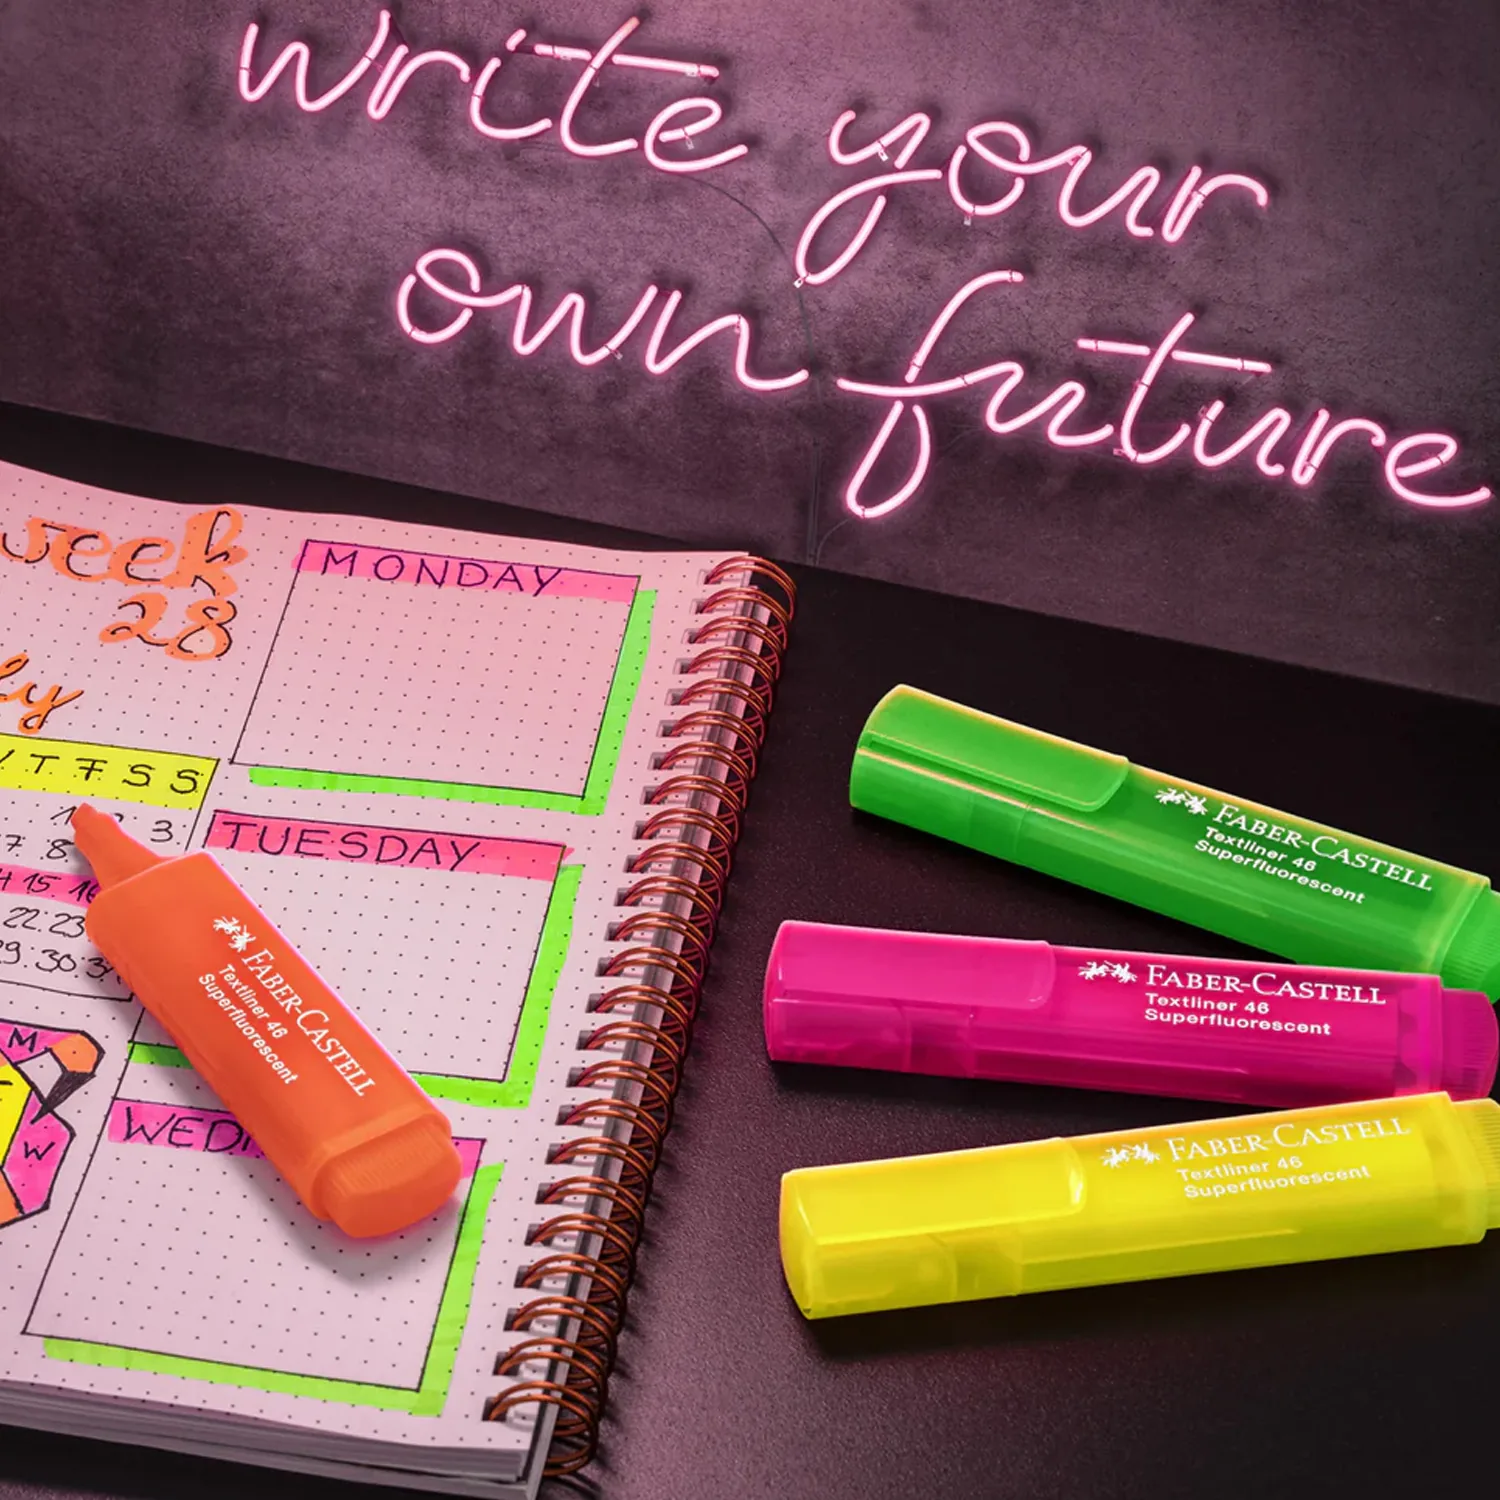 write your
own future
week
28
ly
MONDAY
T F S S
3
7 8
TUESDAY
15 16
22 23
29 30 31
M
W
FABER-CASTELL
Textliner 46
Superfluorescent
FABER-CASTELL
Textliner 46
Superfluorescent
FABER-CASTELL
Textliner 46
Superfluorescent
FABER-CASTELL
Textliner 46
Superfluorescent